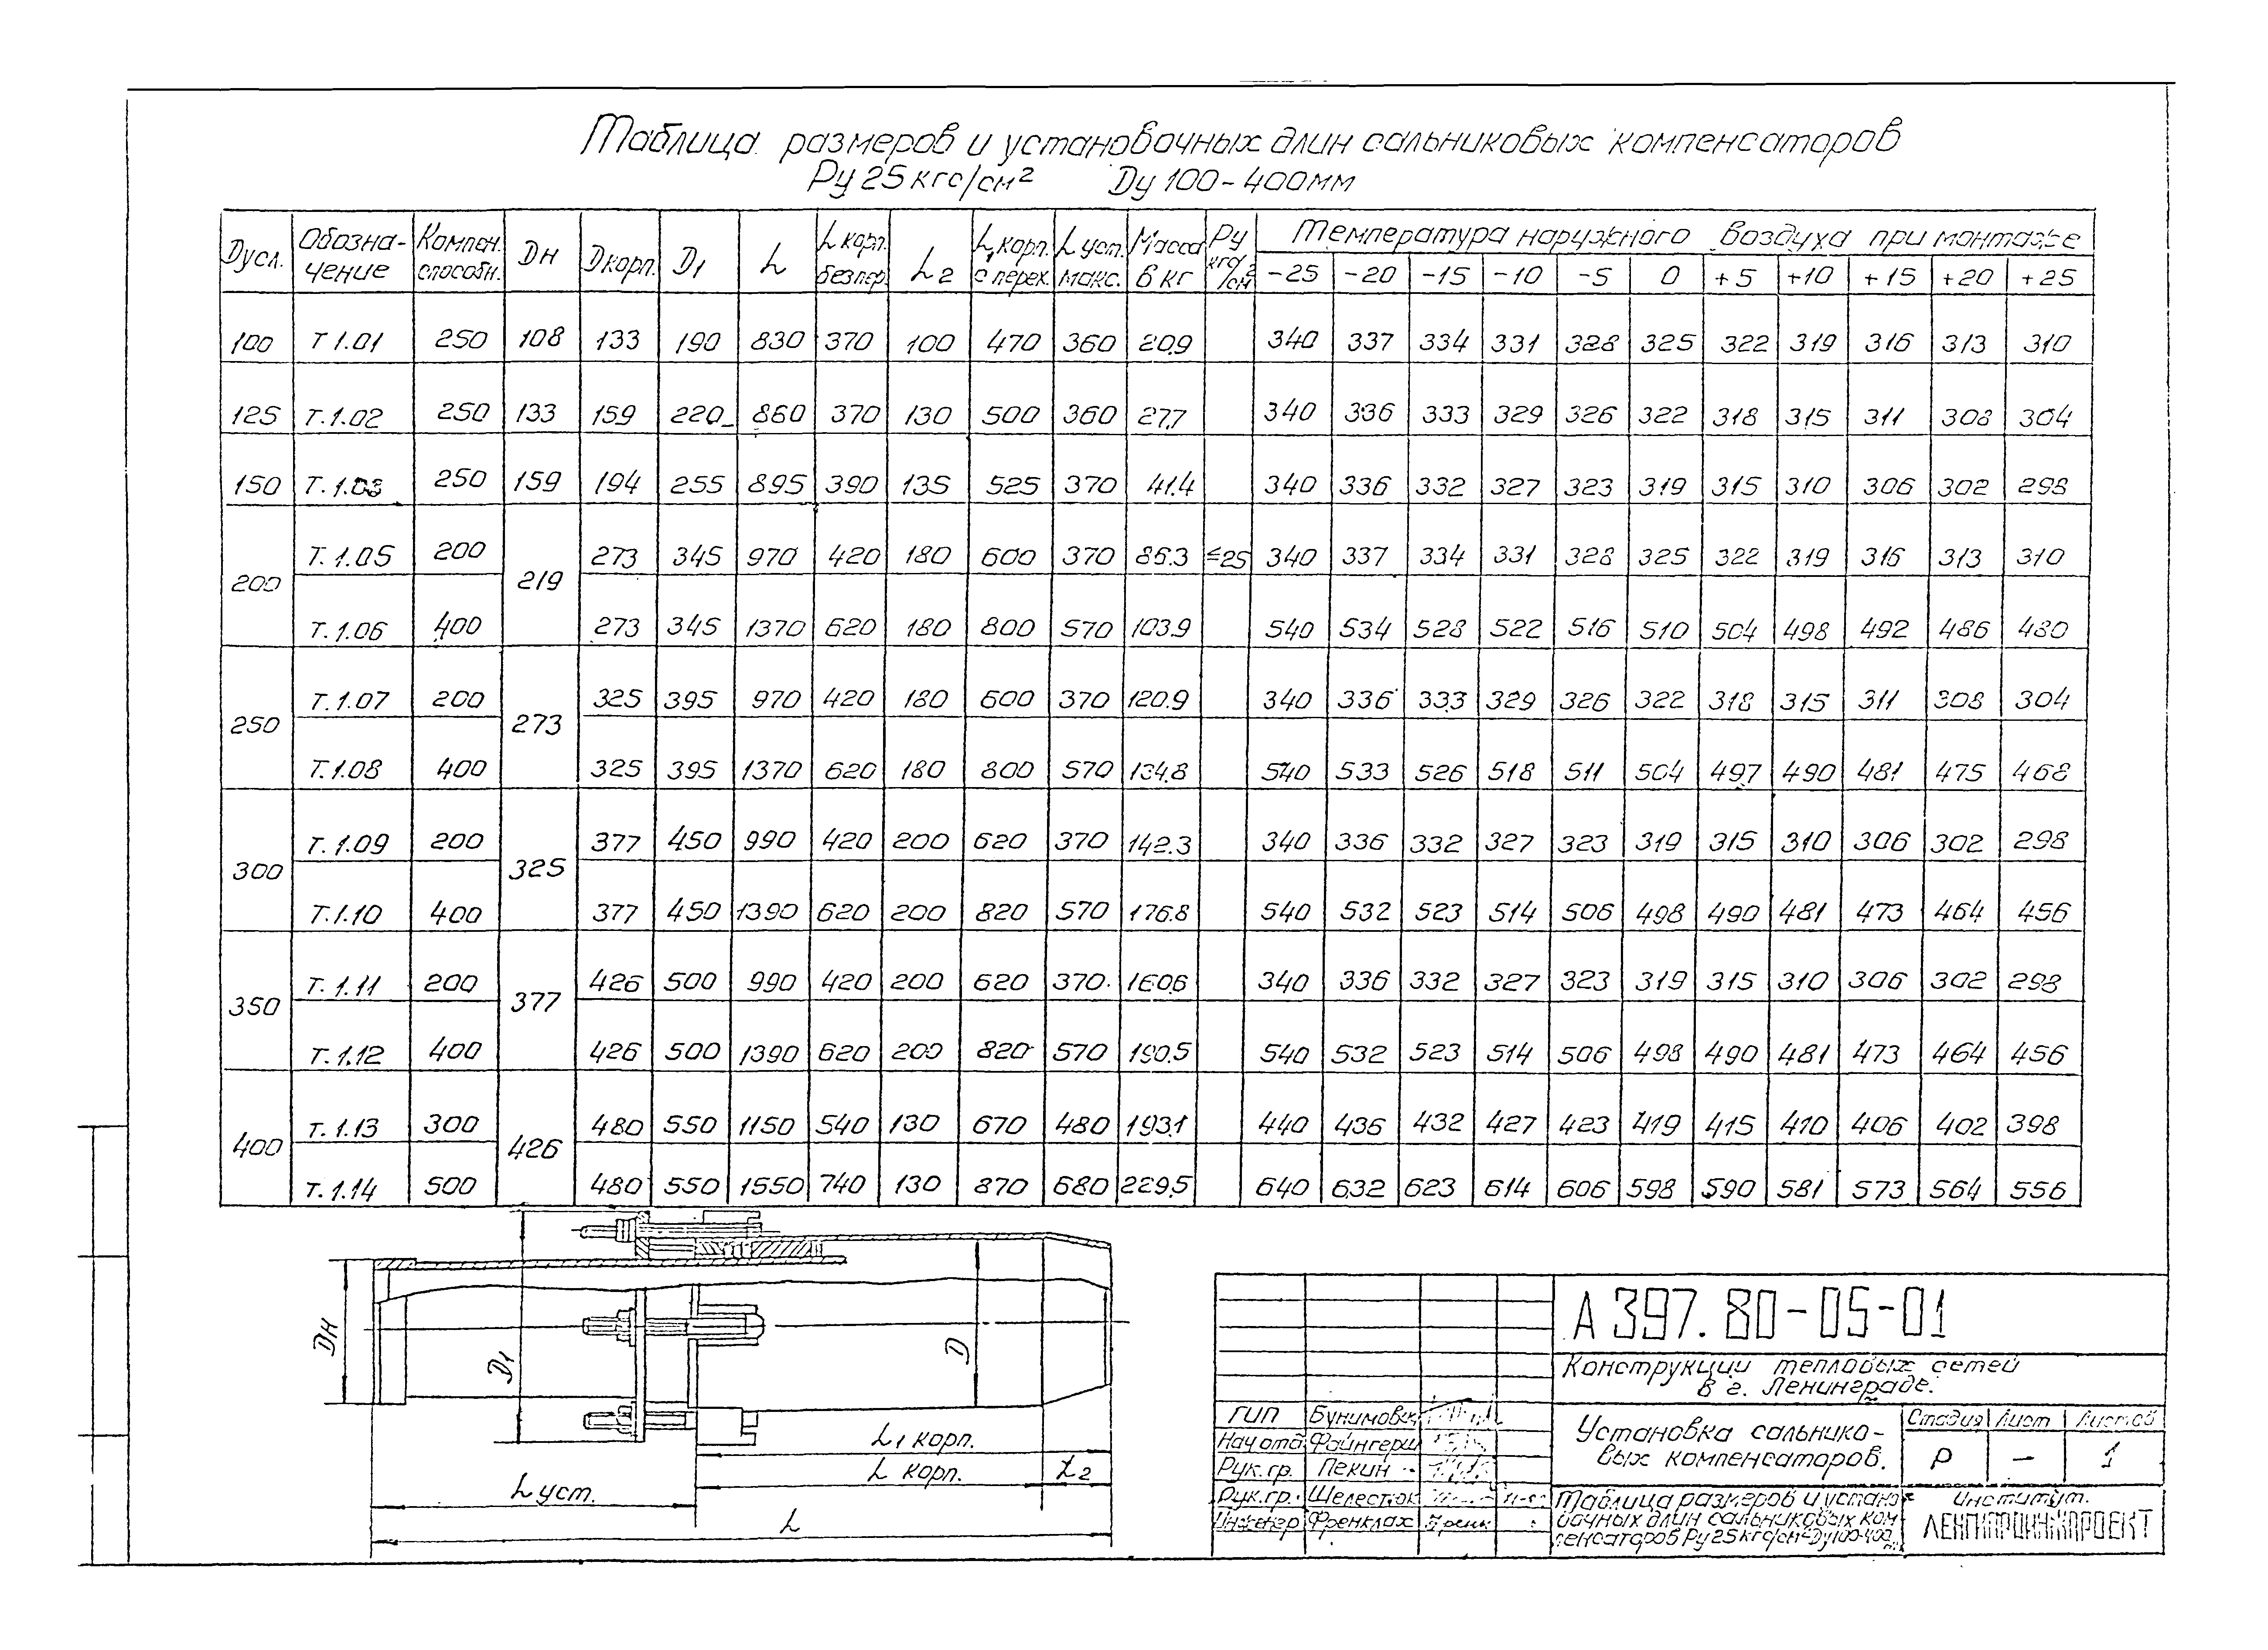 Таблица размеров и установочных длин сальниковых компенсаторов
Ру 25 кгс/см² Ду 100-400мм
Дусл. Обозна-чение Компен. способн. Дн Дкорп. Д1 L L корп. безпер. L2 L1 корп. с перех. L уст. макс. Масса в кг Ру кгс/см² Температура наружного воздуха при монтаже
-25 -20 -15 -10 -5 0 +5 +10 +15 +20 +25
100 Т 1.01 250 108 133 190 830 370 100 470 360 20.9 340 337 334 331 328 325 322 319 316 313 310
125 Т.1.02 250 133 159 220 860 370 130 500 360 27.7 340 336 333 329 326 322 318 315 311 308 304
150 Т.1.03 250 159 194 255 895 390 135 525 370 41.4 340 336 332 327 323 319 315 310 306 302 298
200 Т.1.05 200 219 273 345 970 420 180 600 370 86.3 ≤25 340 337 334 331 328 325 322 319 316 313 310
Т.1.06 400 273 345 1370 620 180 800 570 103.9 540 534 528 522 516 510 504 498 492 486 480
250 Т.1.07 200 273 325 395 970 420 180 600 370 120.9 340 336 333 329 326 322 318 315 311 308 304
Т.1.08 400 325 395 1370 620 180 800 570 134,8 540 533 526 518 511 504 497 490 481 475 468
300 Т.1.09 200 325 377 450 990 420 200 620 370 142.3 340 336 332 327 323 319 315 310 306 302 298
Т.1.10 400 377 450 1390 620 200 820 570 176.8 540 532 523 514 506 498 490 481 473 464 456
350 Т.1.11 200 377 426 500 990 420 200 620 370 160.6 340 336 332 327 323 319 315 310 306 302 298
Т.1.12 400 426 500 1390 620 200 820 570 190,5 540 532 523 514 506 498 490 481 473 464 456
400 Т.1.13 300 426 480 550 1150 540 130 670 480 193.1 440 436 432 427 423 419 415 410 406 402 398
Т.1.14 500 480 550 1550 740 130 870 680 229,5 640 632 623 614 606 598 590 581 573 564 556
Дн
Д1
Д
L1 корп.
L корп. L2
L уст.
L
А 397.80-05-01
Конструкции тепловых сетей
в г. Ленинграде.
ГИП
Нач отд.
Рук.гр. Пекин
Рук.гр. Шелестюк
Инженер Френклах
Установка сальнико-
вых компенсаторов.
Стадия Лист Листов
Р — 1
Таблица размеров и устано-
вочных длин сальниковых ком-
пенсаторов Ру 25 кгс/см² Ду100-400
Институт.
ЛЕНГИПРОИНЖПРОЕКТ